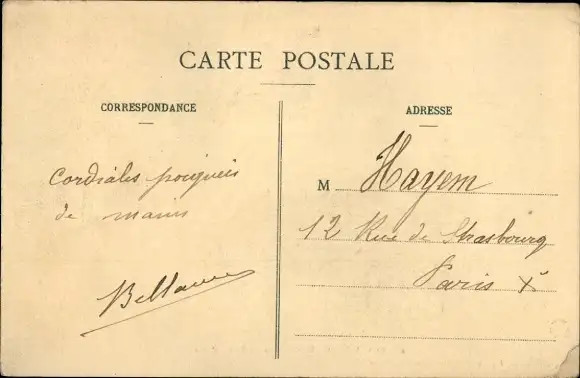 CARTE POSTALE
CORRESPONDANCE
ADRESSE
Cordiales poignées
de mains
M Hayem
12 Rue de Strasbourg
Paris X